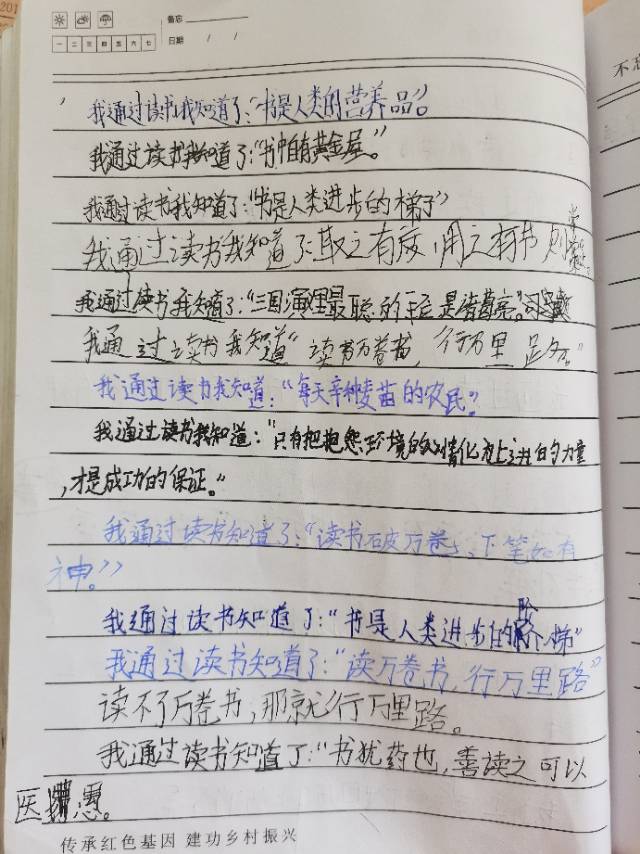 备忘
一 二 三 四 五 六 七 日期 / /
我通过读书我知道了:“书是人类的营养品”。
我通过读书我知道了:“书中自有黄金屋。”
我通过读书我知道了:“书是人类进步的梯子”
我通过读书我知道了:取之有度,用之有节,则常
我通过读书我知道了:“三国演里最聪的是诸葛亮”。
我通过读书我知道“读书万卷书,行万里
我通过读书我知道:“每天辛种麦苗的农民”
我通过读书我知道:“只有把抱怨环境的情化为上进的力量
,才是成功的保证。”
我通过读书知道了:“读书破万卷,下笔如有
神。”
我通过读书知道了:“书是人类进步的阶梯”
我通过读书知道了:“读万卷书,行万里路”
读不了万卷书,那就行万里路。
我通过读书知道了:“书犹药也,善读之可以
医愚。
传承红色基因 建功乡村振兴
201
不忘